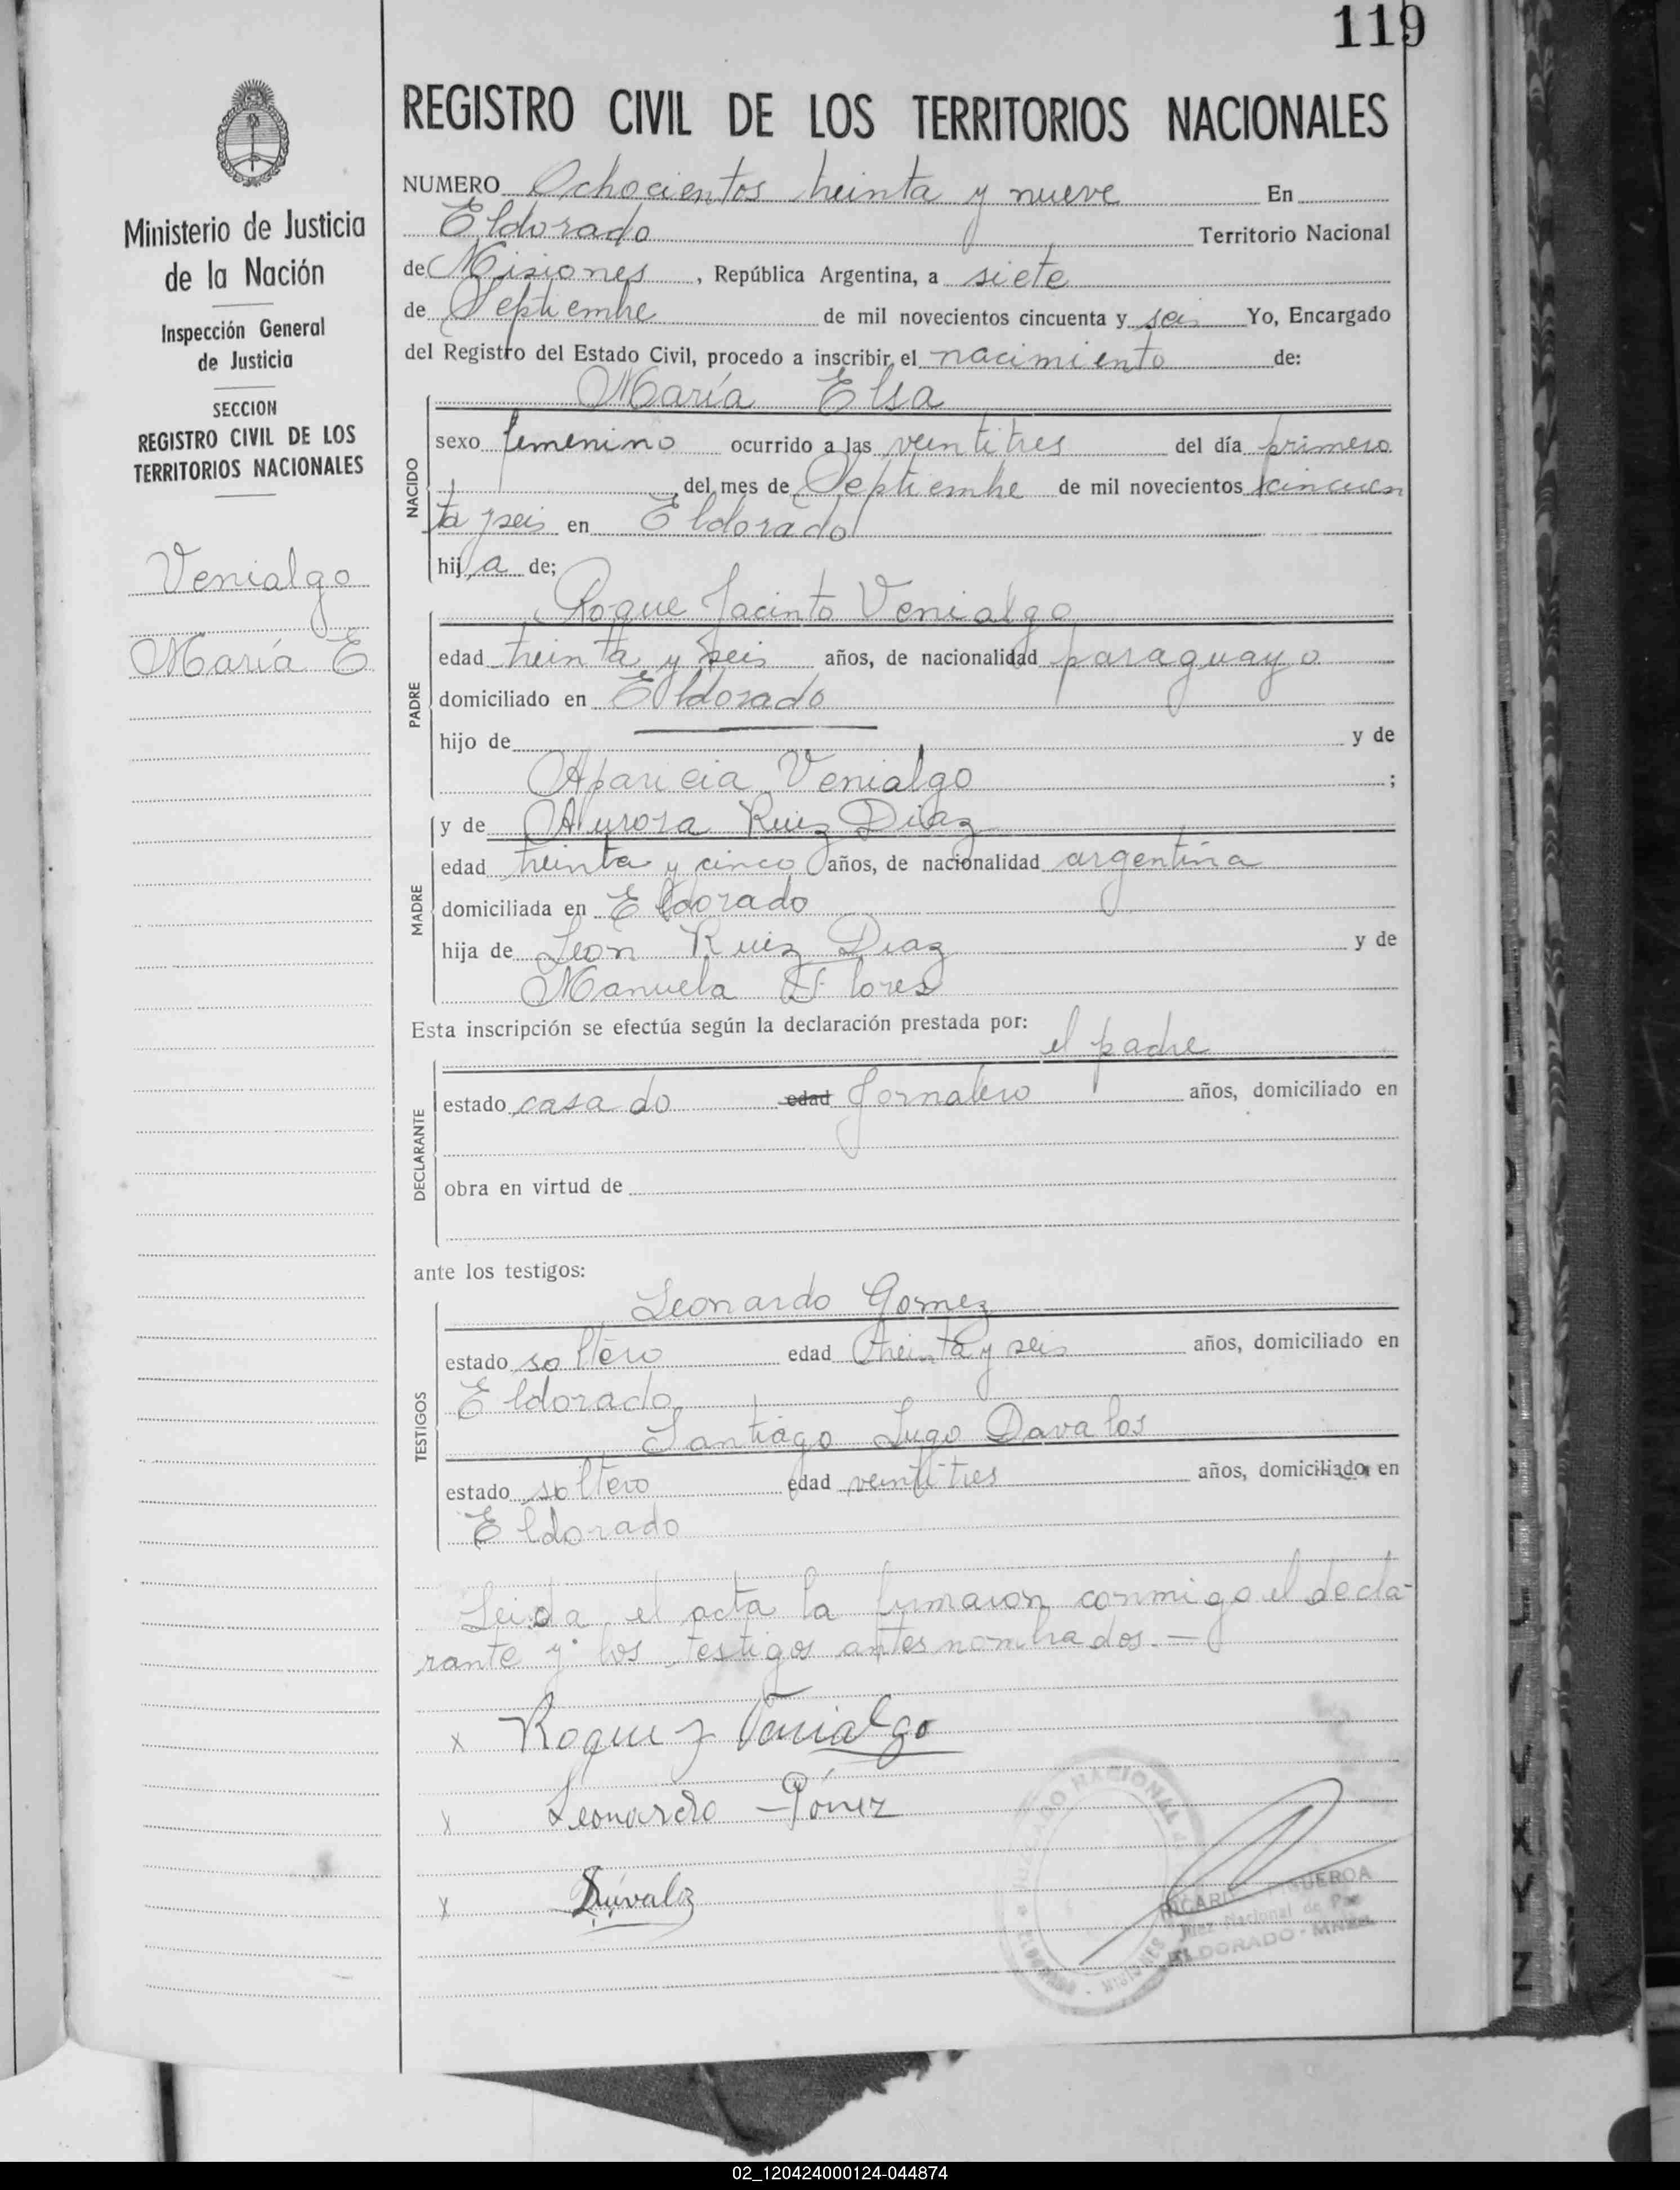 119
REGISTRO CIVIL DE LOS TERRITORIOS NACIONALES
Ministerio de Justicia
de la Nación
Inspección General
de Justicia
SECCION
REGISTRO CIVIL DE LOS
TERRITORIOS NACIONALES
Venialgo
María E
NUMERO Ochocientos treinta y nueve En
Eldorado Territorio Nacional
de Misiones, República Argentina, a siete
de Septiembre de mil novecientos cincuenta y seis Yo, Encargado
del Registro del Estado Civil, procedo a inscribir el nacimiento de:
NACIDO
María Elsa
sexo femenino ocurrido a las veintitres del día primero
del mes de Septiembre de mil novecientos cincuen
ta y seis en Eldorado
hija de;
PADRE
Roque Jacinto Venialgo
edad treinta y seis años, de nacionalidad paraguayo
domiciliado en Eldorado
hijo de y de
Aparicia Venialgo ;
MADRE
y de Aurora Ruiz Diaz
edad treinta y cinco años, de nacionalidad argentina
domiciliada en Eldorado
hija de Leon Ruiz Diaz y de
Manuela Flores
Esta inscripción se efectúa según la declaración prestada por:
el padre
DECLARANTE
estado casado edad Jornalero años, domiciliado en
obra en virtud de
ante los testigos:
TESTIGOS
Leonardo Gomez
estado soltero edad treinta y seis años, domiciliado en
Eldorado
Santiago Lugo Davalos
estado soltero edad veintitres años, domiciliado en
Eldorado
Leida el acta la firmaron conmigo el decla-
rante y los testigos antes nombrados.—
x Roque J Venialgo
x Leonardo Gómez
x
JUZGADO NACIONAL
ELDORADO - MISIONES
RICARDO FIGUEROA
Juez Nacional de Paz
ELDORADO - MNES.
02_120424000124-044874